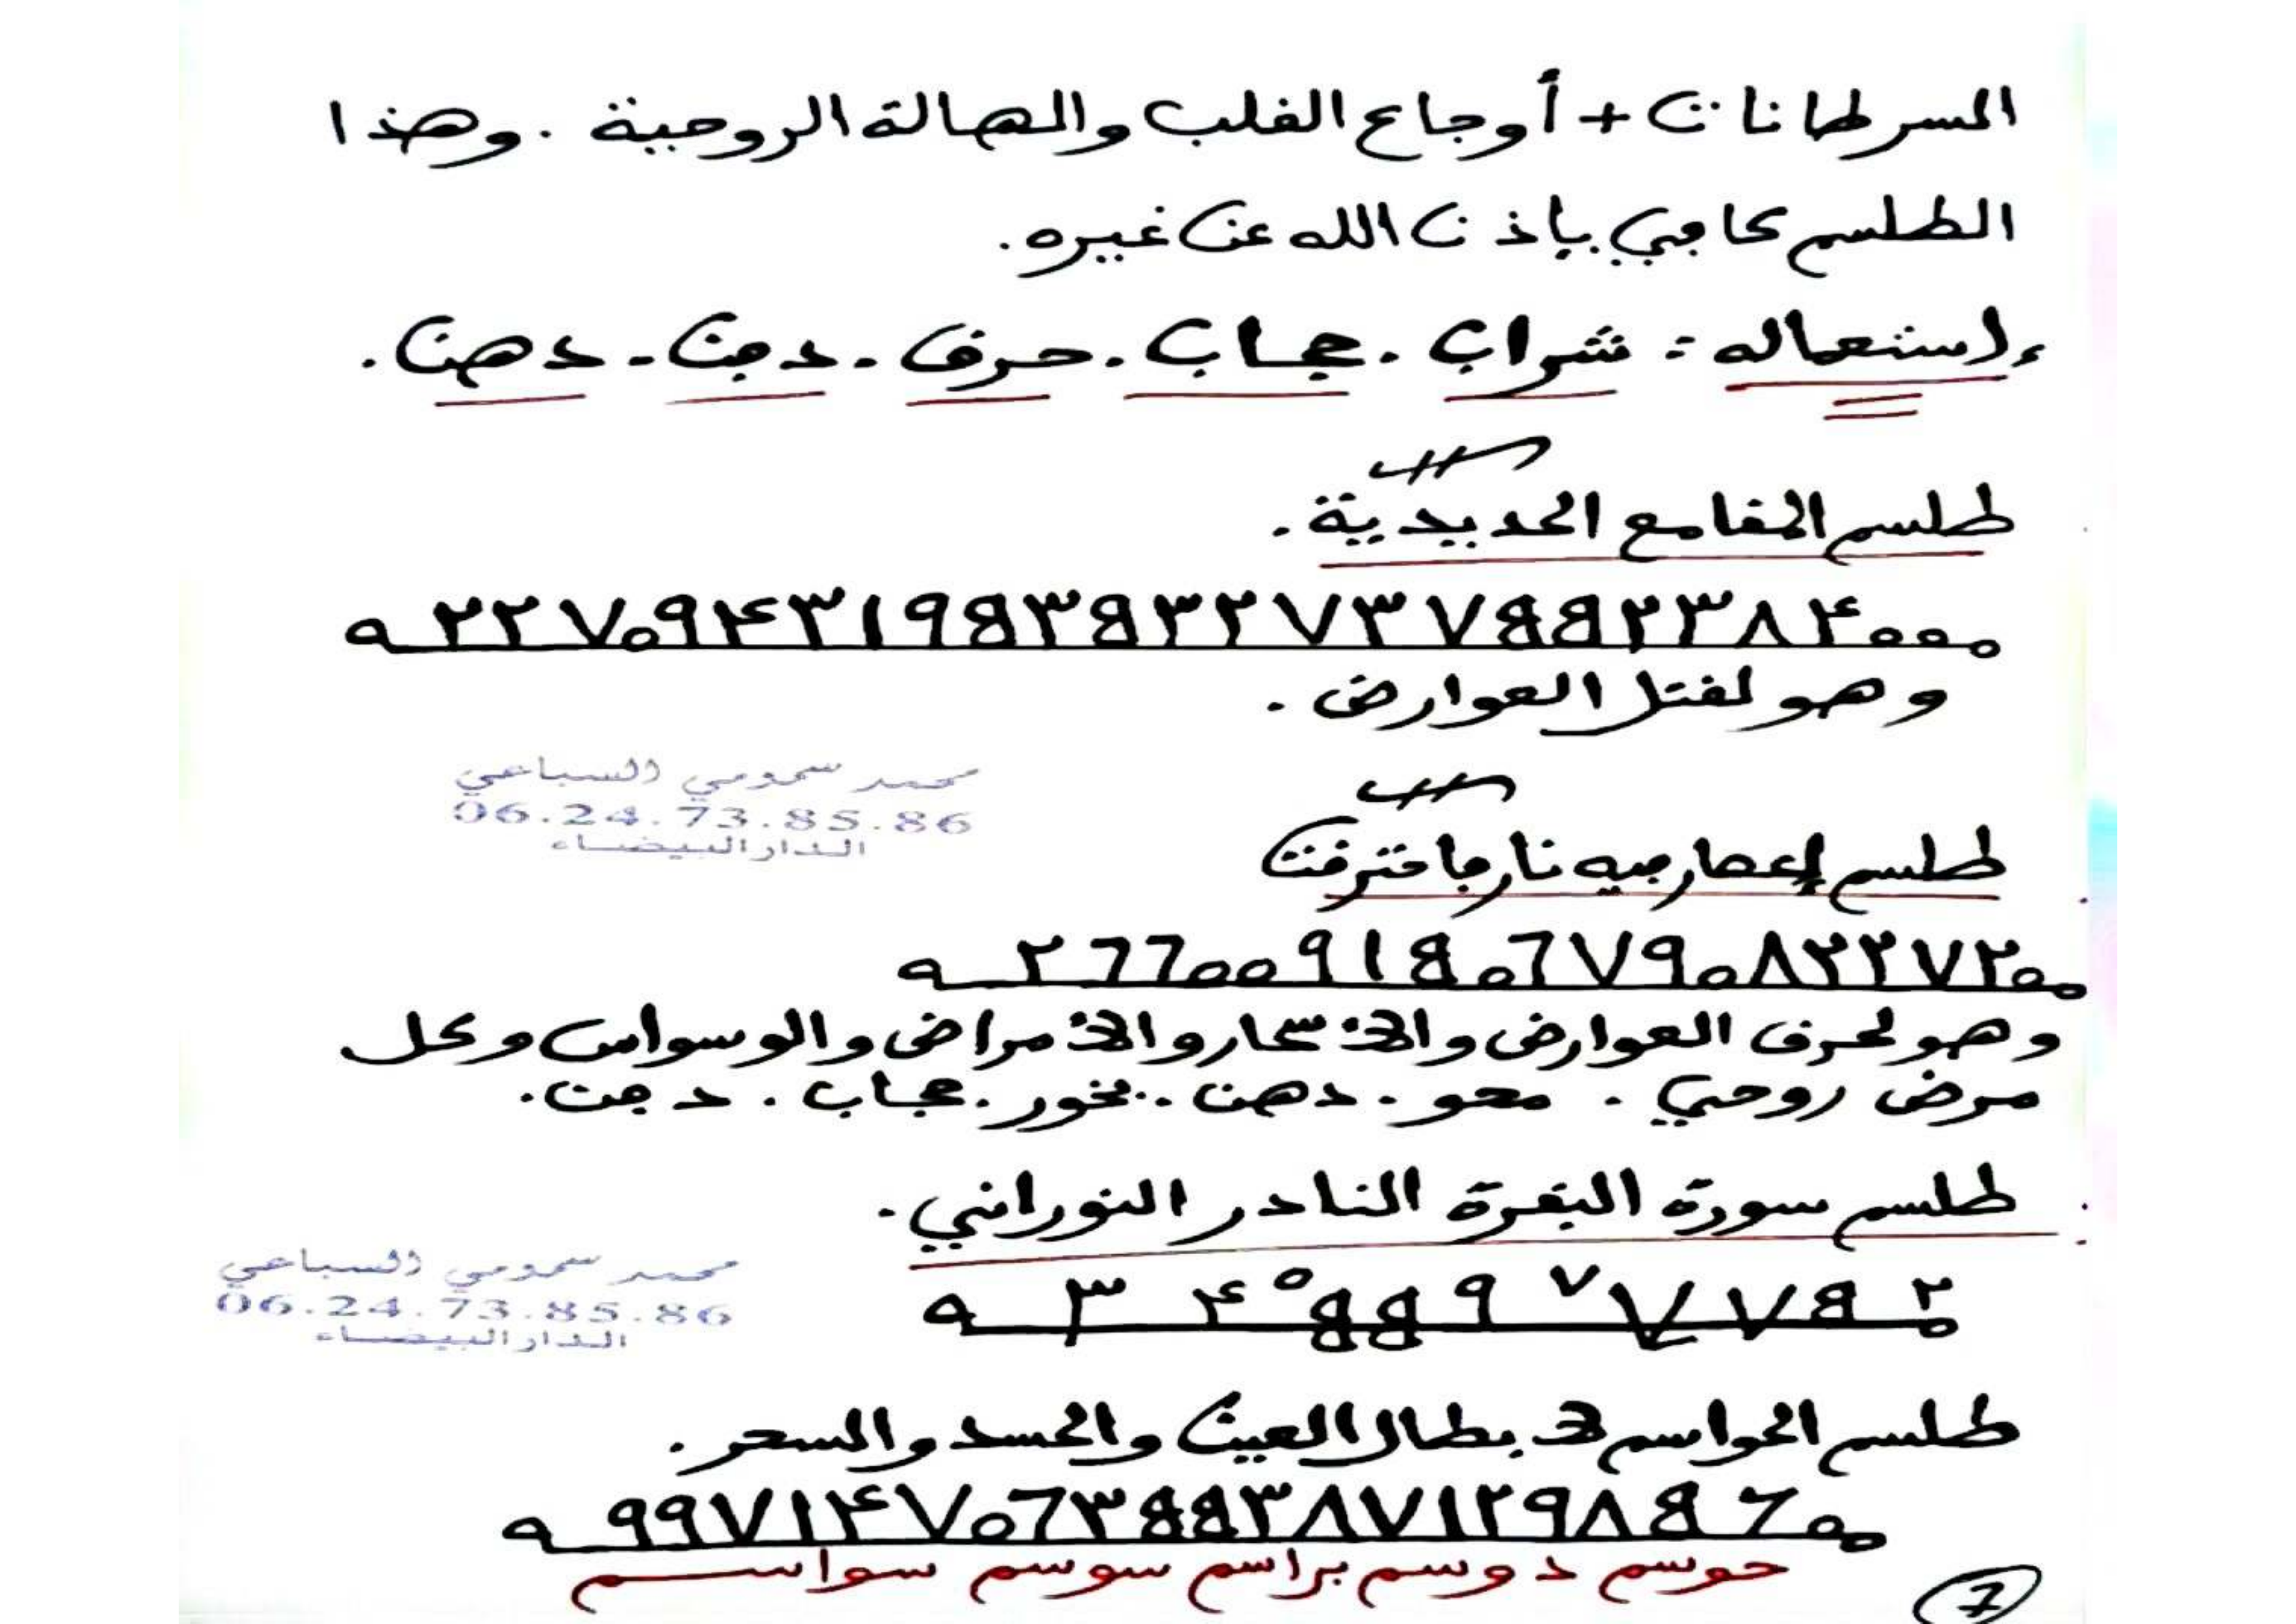 السرطانات + أوجاع القلب والهالة الروحية . وهذا
الطلسم كافي بإذن الله عن غيره .
إستعماله : شراب . حجاب . حرق . دفن . دهن .
طلسم المقامع الحديدية .
٥٢٢٧٥٩٤٣١٩٨٣٨٣٢٧٣٧٨٨٢٣٨٤٥٥٥٥
وهو لقتل العوارض .
محمد سمومي السباعي
06.24.73.85.86
الدار البيضاء
طلسم إعصار فيه نار فاحترقت
٥٢٦٦٥٥٩١٨٥٦٧٩٥٨٢٢٧٢٥٥
وهو لحرق العوارض والأسحار والأمراض والوسواس وكل
مرض روحي . محو . دهن . بخور . حجاب . دفن .
طلسم سورة البقرة النادر النوراني .
محمد سمومي السباعي
06.24.73.85.86
الدار البيضاء
طلسم الحواسم لإبطال العين والحسد والسحر .
٥٩٩٧١٤٧٥٦٣٨٨٣٨٧١٢٩٨٨٦٥٥
حوسم دوسم براسم سوسم سواسم
7